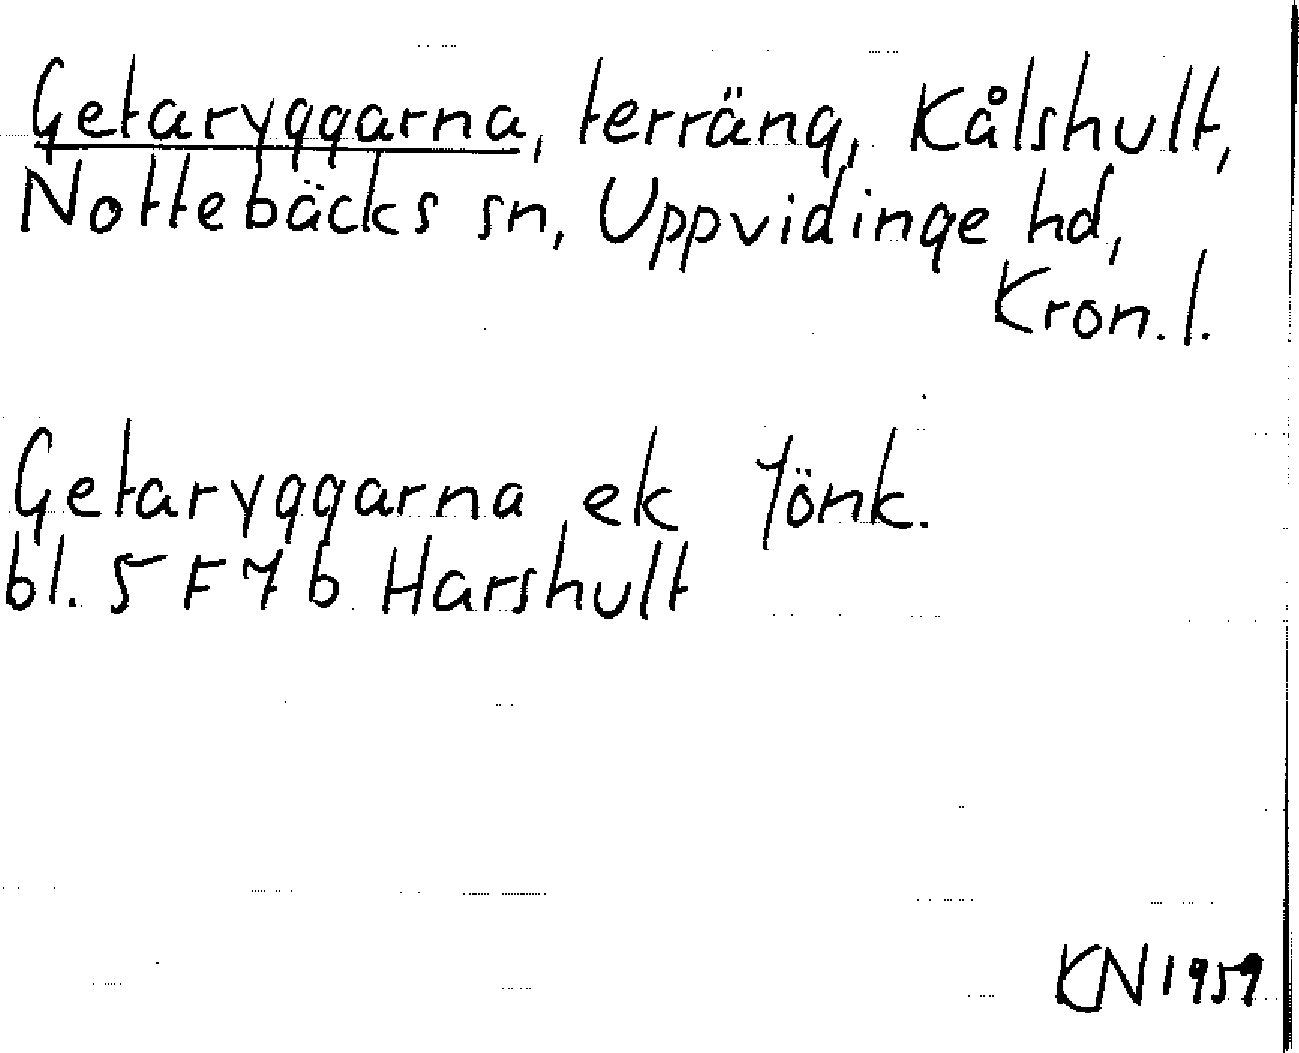 Getaryggarna, terräng, Kålshult,
Nottebäcks sn, Uppvidinge hd,
Kron. l.
Getaryggarna ek Jönk.
bl. 5 F 7 b Harshult
KN 1959